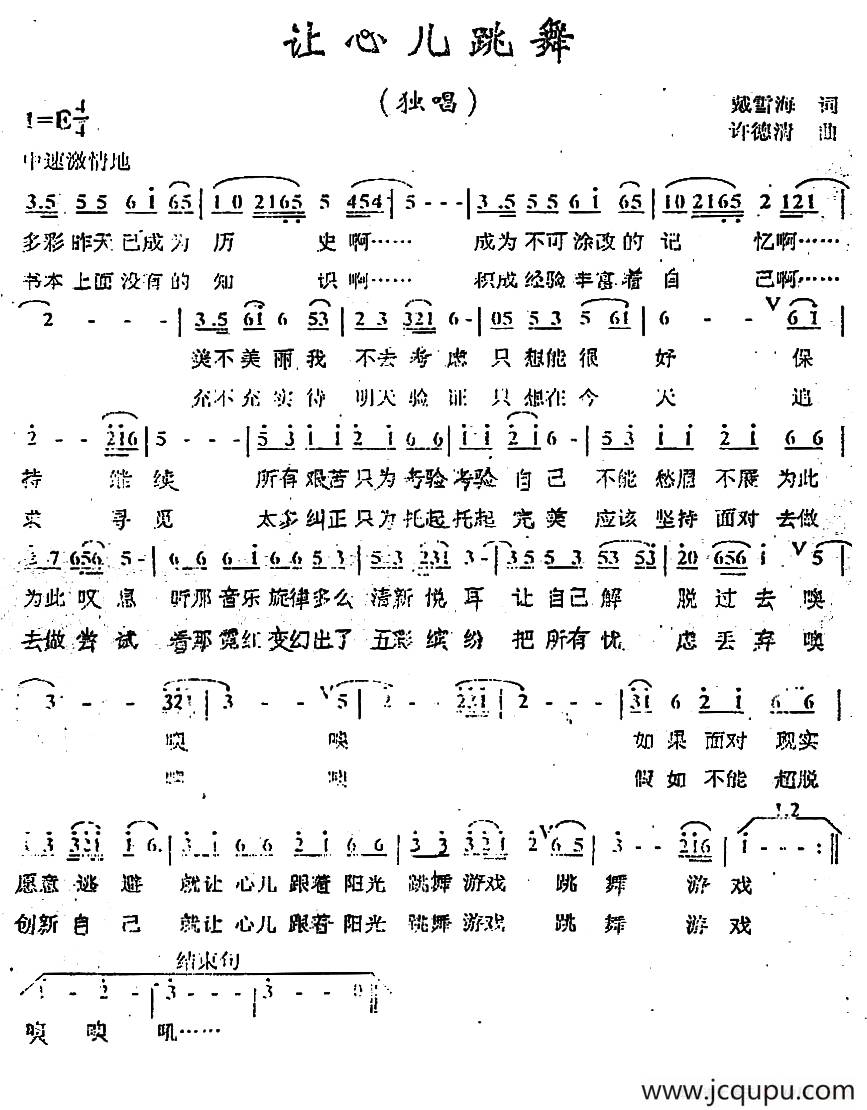 让心儿跳舞
(独唱)
1=E 4/4
戴雪海 词
许德清 曲
中速激情地
3.5 5 5 6 i 65 | 1 0 2165 5 454 | 5 - - - | 3.5 5 5 6 i 65 | 10 2165 2 121 |
多彩昨天已成为历 史啊…… 成为不可涂改的记 忆啊……
书本上面没有的知 识啊…… 积成经验丰富着自 己啊……
2 - - - | 3.5 6i 6 53 | 2 3 321 6 - | 05 5 3 5 6i | 6 - - V 6i |
美不美丽我 不去考虑 只想能很 好 保
充不充实待 明天验证 只想在今 天 追
2 - - 216 | 5 - - - | 5 3 i i 2 i 6 6 | i i 2i 6 - | 5 3 i i 2 i 6 6 |
持 继续 所有艰苦只为考验考验自己 不能愁眉不展为此
求 寻觅 太多纠正只为托起托起完美 应该坚持面对去做
7 656 5 - | 6 6 6 i 6 6 5 3 | 5 3 231 3 - | 3 5 5 3 53 53 | 20 656 i V 5 |
为此叹息 听那音乐旋律多么清新悦耳 让自己解 脱过去噢
去做尝试 看那霓红变幻出了五彩缤纷 把所有忧 虑丢弃噢
3 - - 321 | 3 - - V 5 | 2 - - 231 | 2 - - - | 31 6 2 i 6 6 |
噢 噢 如果面对现实
噢 噢 假如不能超脱
3 3 321 i 6. | 3 i 6 6 2 i 6 6 | 3 3 321 2 V 65 | 3 - - 216 | i - - - :||
1.2
愿意逃避 就让心儿跟着阳光 跳舞游戏 跳舞 游戏
创新自己 就让心儿跟着阳光 跳舞游戏 跳舞 游戏
结束句
1 - 2 - | 3 - - - | 3 - - 0 ||
噢 噢 吼……
www.jcqupu.com